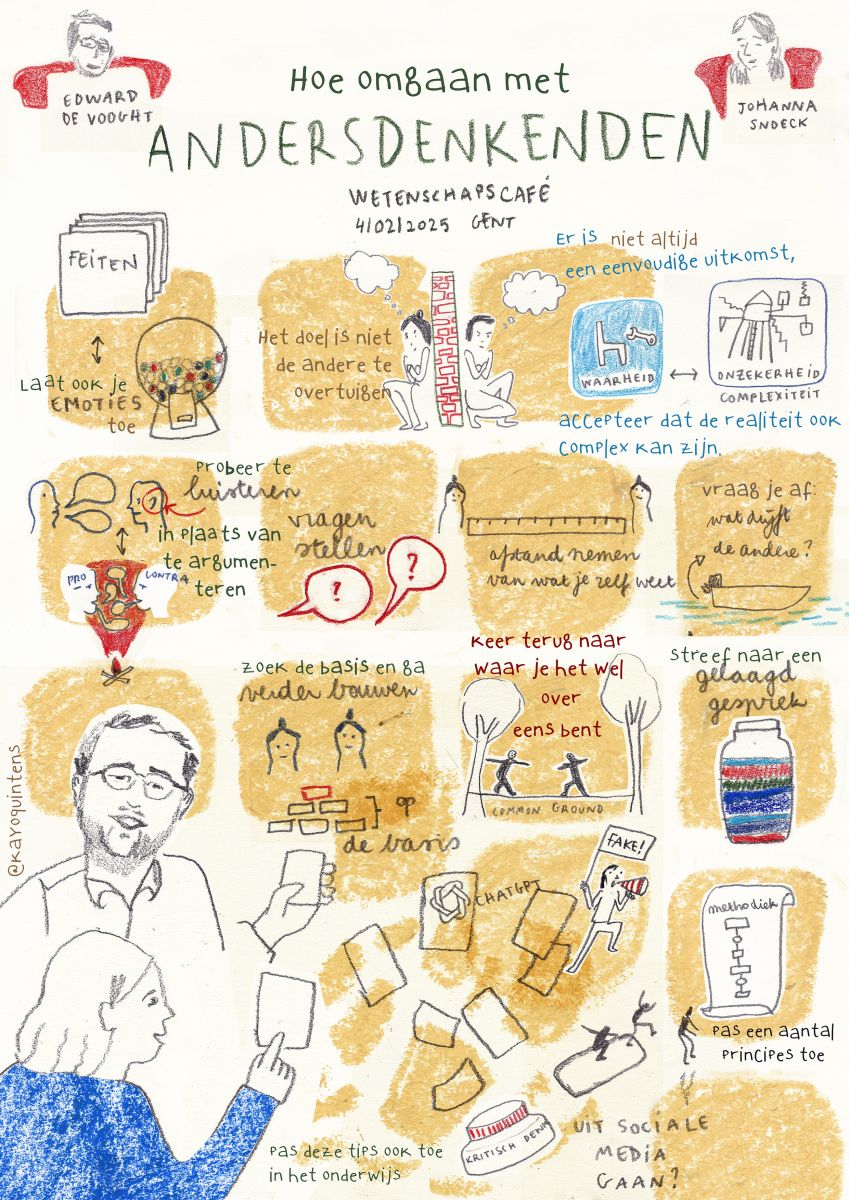 EDWARD
DE VOOGHT
JOHANNA
SNOECK
Hoe omgaan met
ANDERSDENKENDEN
WETENSCHAPSCAFÉ
4/02/2025 GENT
FEITEN
Laat ook je
EMOTIES
toe
Het doel is niet
de andere te
overtuigen
Er is niet altijd
een eenvoudige uitkomst,
WAARHEID
ONZEKERHEID
COMPLEXITEIT
accepteer dat de realiteit ook
complex kan zijn.
probeer te
luisteren
in plaats van
te argumen-
teren
PRO
CONTRA
vragen
stellen
?
?
afstand nemen
van wat je zelf weet
vraag je af:
wat drijft
de andere?
zoek de basis en ga
verder bouwen
op
de basis
keer terug naar
waar je het wel
over
eens bent
COMMON GROUND
streef naar een
gelaagd
gesprek
@KAYOQUINTENS
CHATGPT
FAKE!
methodiek
pas een aantal
principes toe
KRITISCH DENK
UIT SOCIALE
MEDIA
GAAN?
pas deze tips ook toe
in het onderwijs